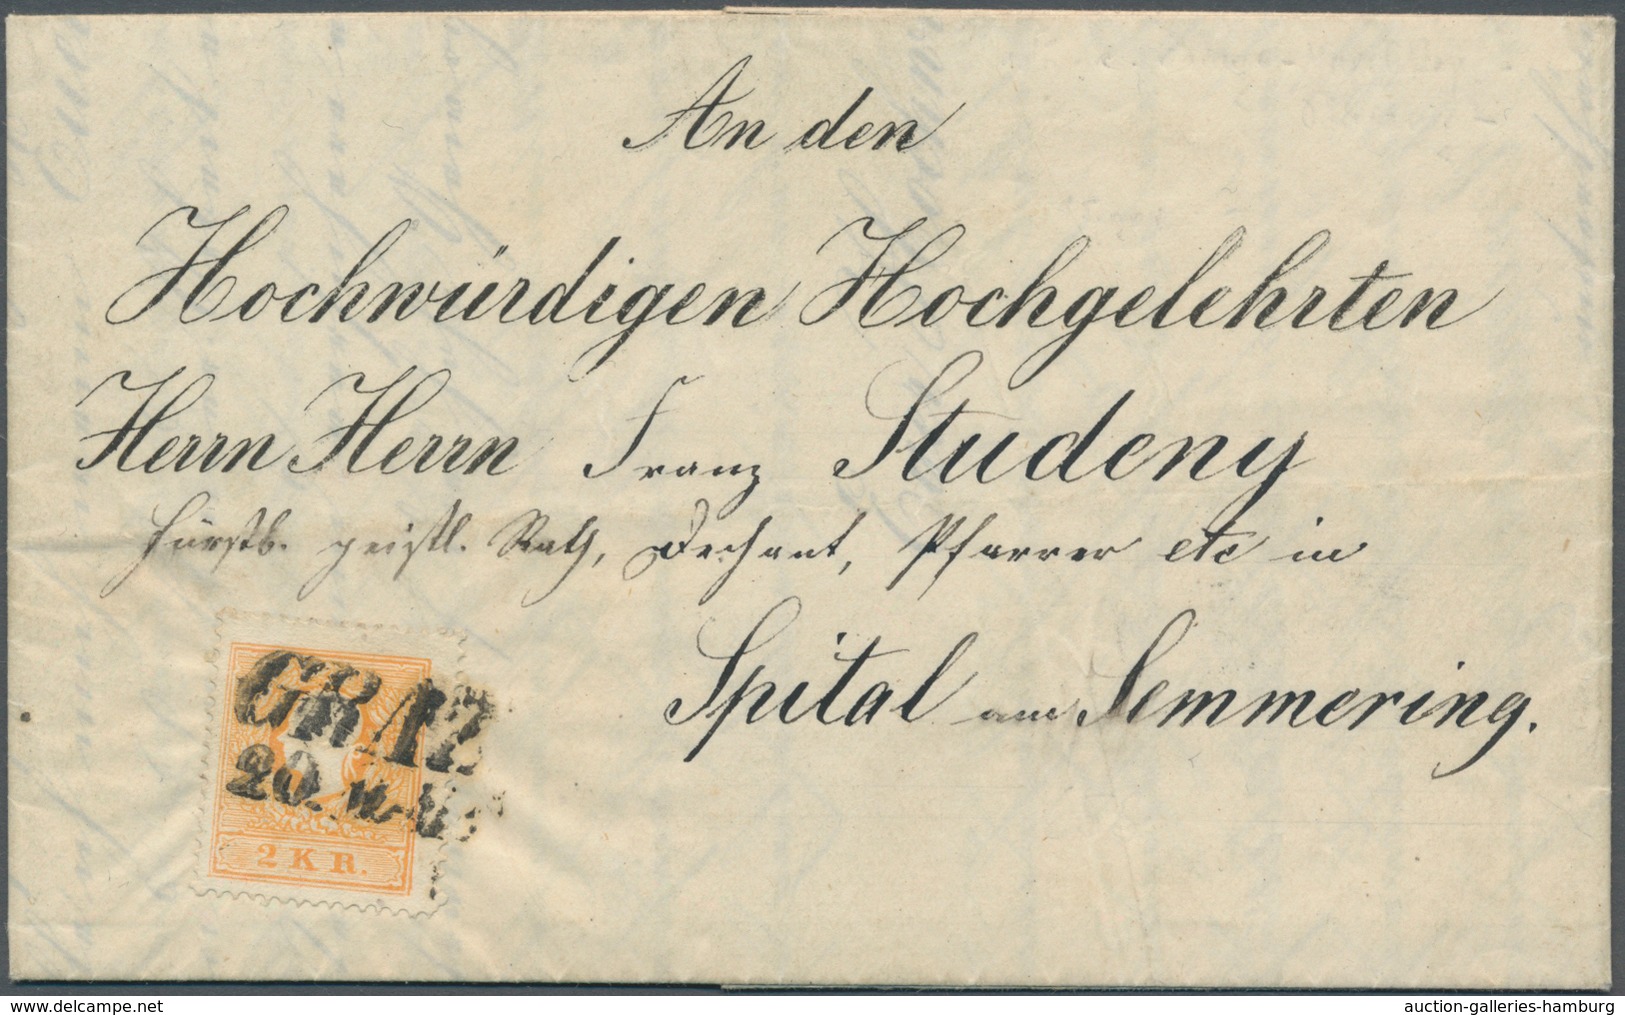 An den
Hochwürdigen Hochgelehrten
Herrn Herrn Franz Studeny
Fürstb. geistl. Rath, Dechant, Pfarrer etc in
Spital am Semmering.
GRAZ
20.
2 KR.
www.delcampe.net
auction-galleries-hamburg